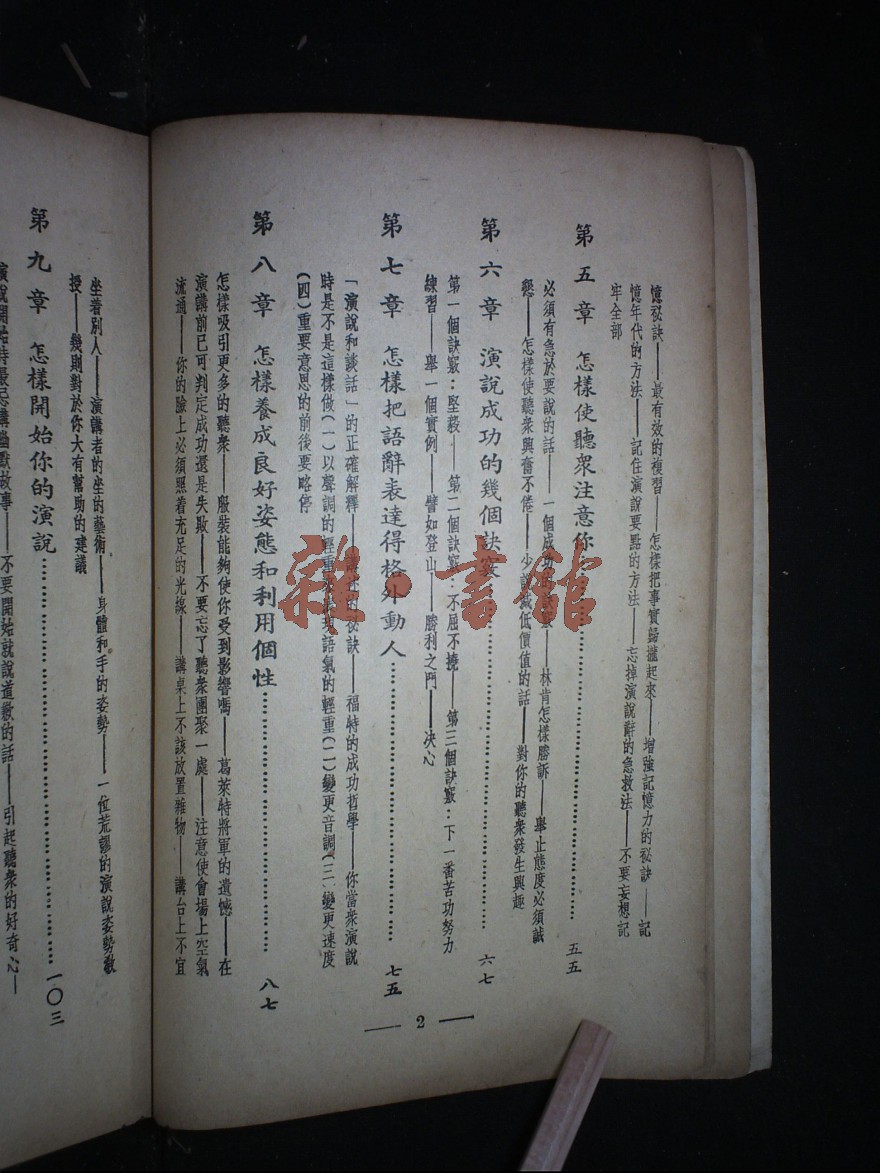 憶祕訣——最有效的複習——怎樣把事實歸攏起來——增強記憶力的祕訣——記
憶年代的方法——記住演說要點的方法——忘掉演說辭的急救法——不要妄想記
牢全部
第五章 怎樣使聽衆注意你…………五五
必須有急於要說的話——一個成功的——林肯怎樣勝訴——舉止態度必須誠
懇——怎樣使聽衆興奮不倦——少說減低價值的話——對你的聽衆發生興趣
第六章 演說成功的幾個訣竅…………六七
第一個訣竅：堅毅——第二個訣竅：不屈不撓——第三個訣竅：下一番苦功努力
練習——舉一個實例——譬如登山——勝利之門——決心
第七章 怎樣把語辭表達得格外動人…………七五
「演說和談話」的正確解釋——祕訣——福特的成功哲學——你當衆演說
時是不是這樣做（一）以聲調的輕重來表現語氣的輕重（二）變更音調（三）變更速度
（四）重要意思的前後要略停
第八章 怎樣養成良好姿態和利用個性…………八七
怎樣吸引更多的聽衆——服裝能夠使你受到影響嗎——葛萊特將軍的遺憾——在
演講前已可判定成功還是失敗——不要忘了聽衆團聚一處——注意使會場上空氣
流通——你的臉上必須照着充足的光線——講桌上不該放置雜物——講台上不宜
— 2 —
坐着別人——演講者的坐的藝術——身體和手的姿勢——一位荒謬的演說姿勢教
授——幾則對於你大有幫助的建議
第九章 怎樣開始你的演說…………一〇三
演說開始時最忌講幽默故事——不要開始就說道歉的話——引起聽衆的好奇心—
雜·書館